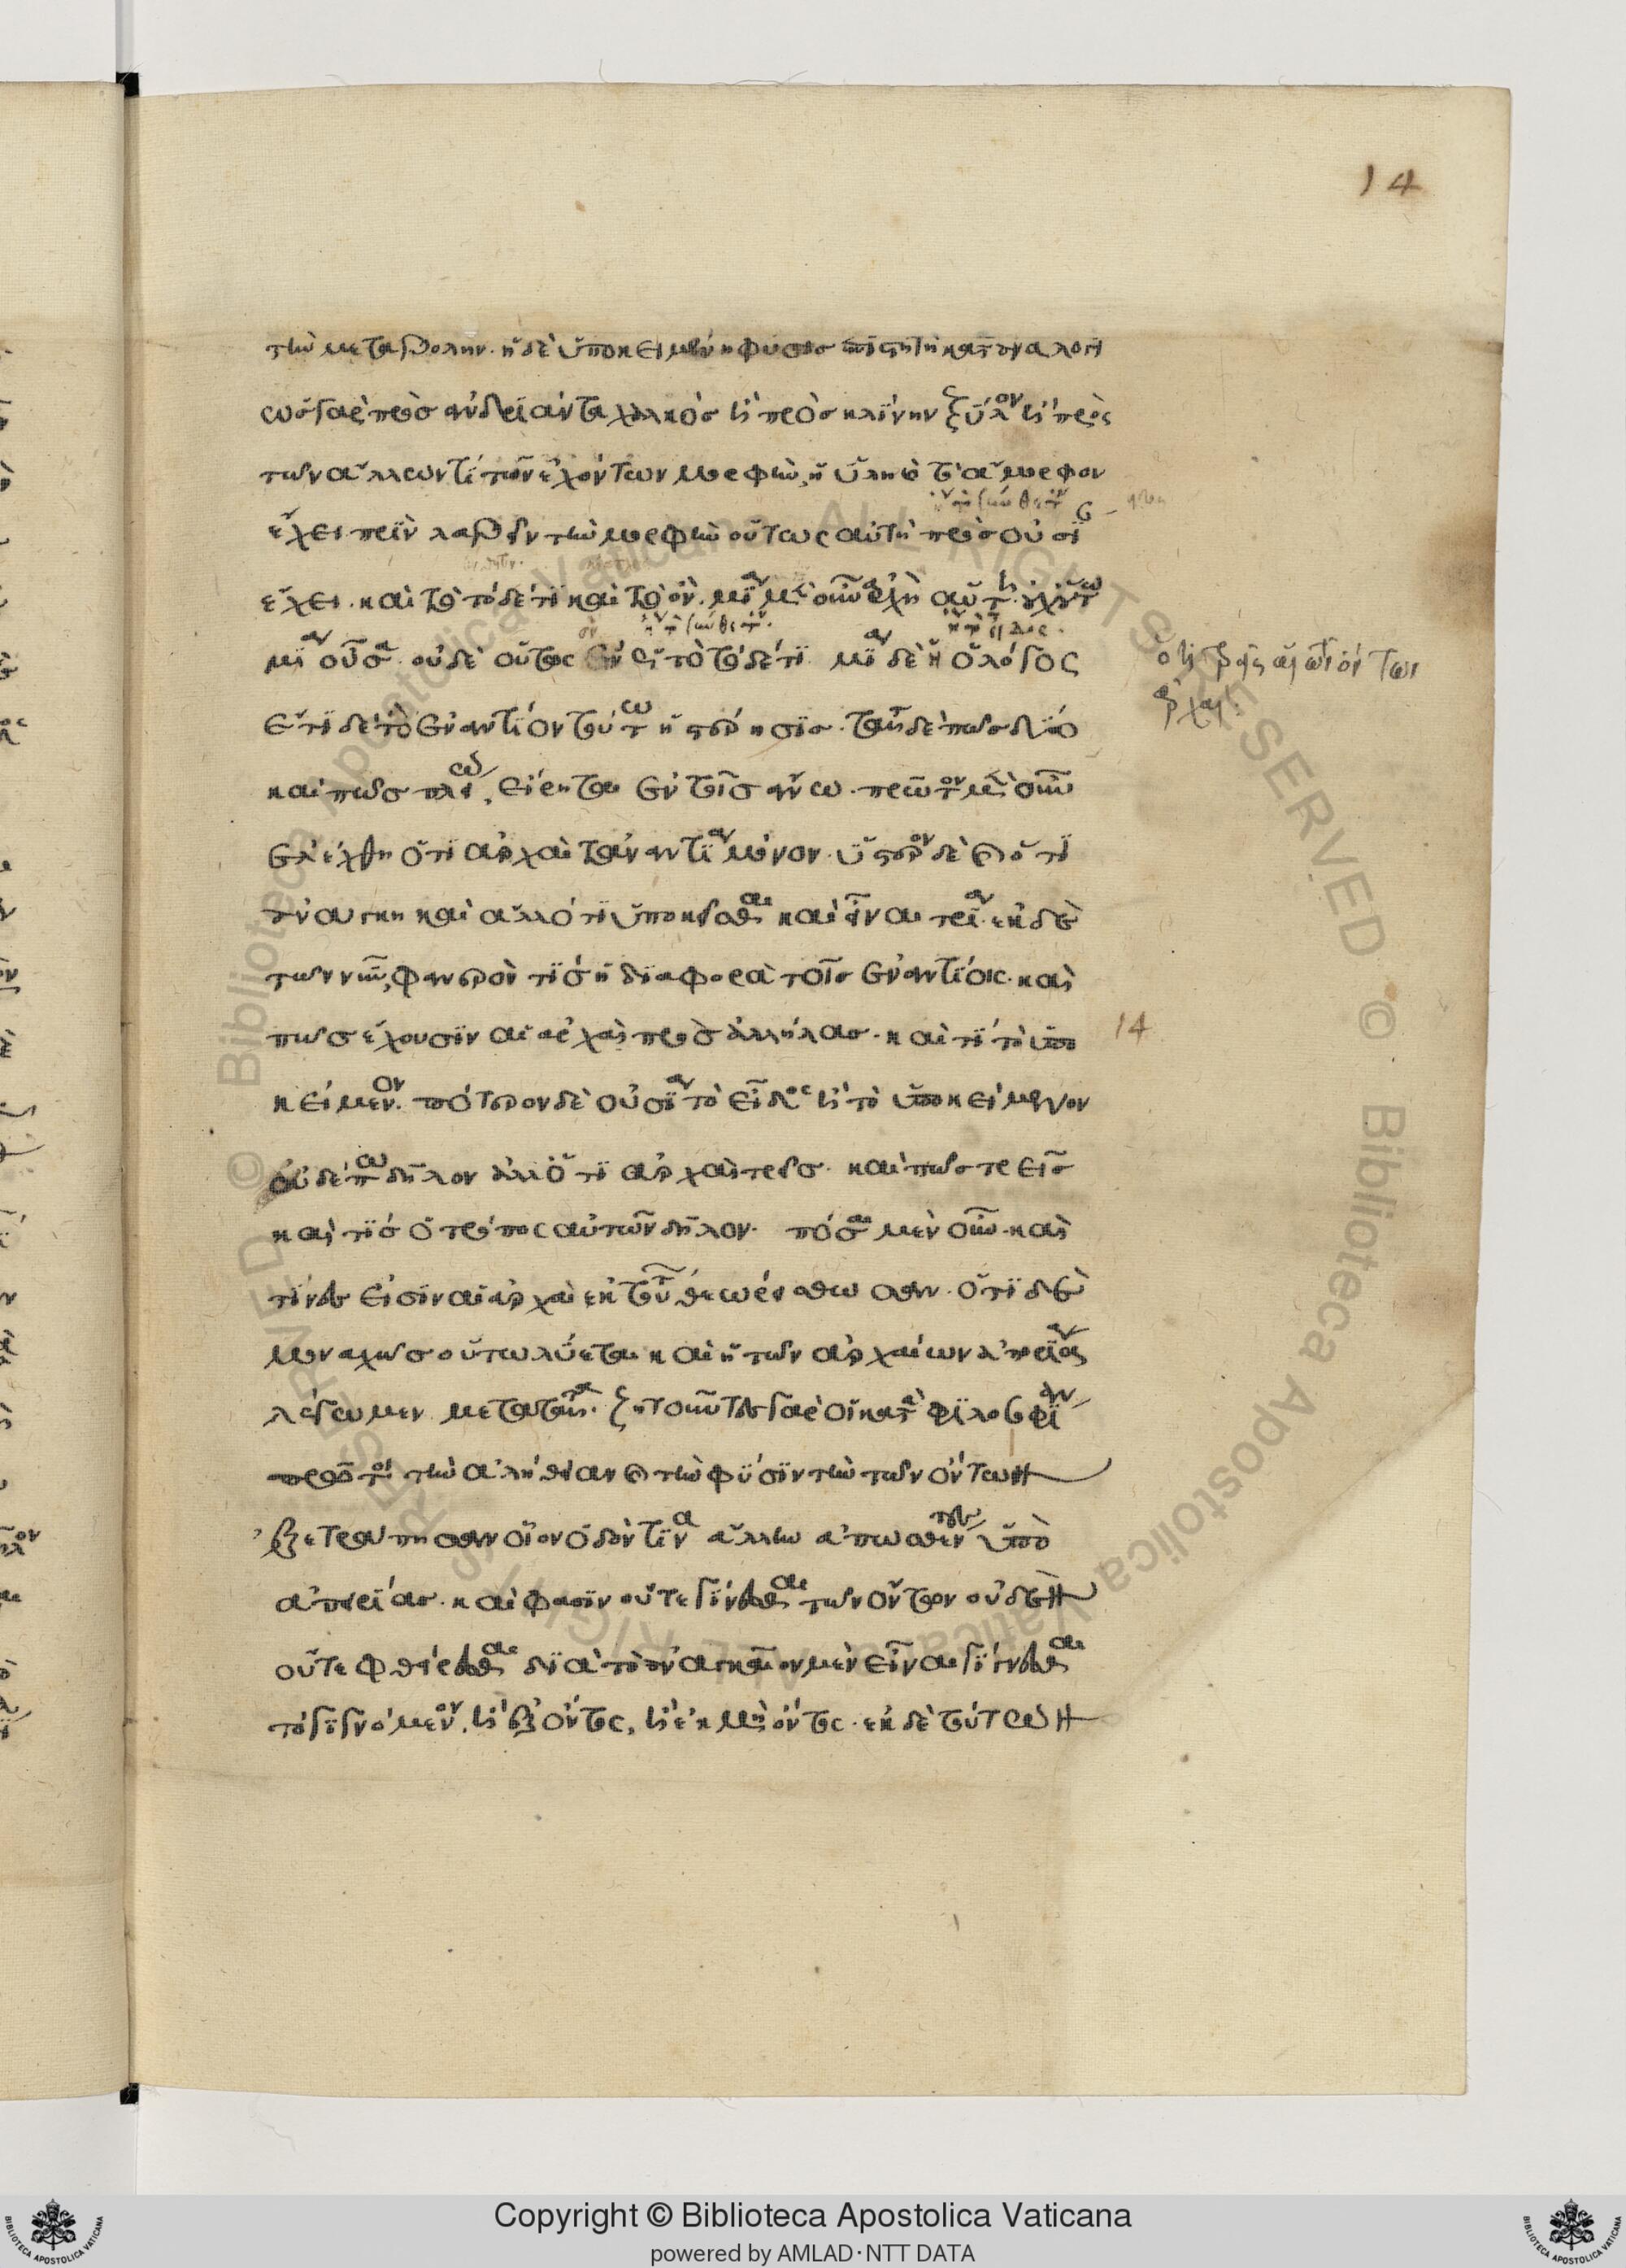 14
τὴν μεταβολήν. ἡ δὲ ὑποκειμένη φύσις ἐπιστητὴ κατ' ἀναλογί
ὡς γὰρ πρὸς ἀνδριάντα χαλκὸς ἢ πρὸς κλίνην ξύλον ἢ πρὸς
τῶν ἄλλων τί τῶν ἐχόντων μορφὴν, ἡ ὕλη καὶ τὸ ἄμορφον
ἔχει πρὶν λαβεῖν τὴν μορφὴν οὕτως αὐτὴ πρὸς οὐσί
ἔχει. καὶ τὸ τόδε τὶ καὶ τὸ ὄν. μία μὲν οὖν ἀρχὴ αὕτη. οὐχ οὕτω
μία οὖσα οὐδὲ οὕτως ὂν ἓν ὡς τὸ τόδε τί. μία δὲ ἡ ὁ λόγος
ἔτι δὲ τὸ ἐναντίον τούτω ἡ στέρησις. ταῦτα δὲ πῶς δύο
καὶ πῶς πλείω, εἴρηται ἐν τοῖς ἄνω. πρῶτον μὲν οὖν
ἐλέχθη ὅτι ἀρχαὶ τἀναντία μόνον. ὕστερον δὲ καὶ ὅτι
ἀνάγκη καὶ ἄλλό τι ὑποκεῖσθαι καὶ εἶναι τρία. ἐκ δὲ
τῶν νῦν, φανερὸν τίς ἡ διαφορὰ τοῖς ἐναντίοις. καὶ
πῶς ἔχουσιν αἱ ἀρχαὶ πρὸς ἀλλήλας. καὶ τί τὸ ὑπο
14
κείμενον. πότερον δὲ οὐσία τὸ εἶδος ἢ τὸ ὑποκείμενον
οὐδέπω δῆλον ἀλλ' ὅτι ἀρχαὶ τρεῖς. καὶ πῶς τρεῖς
καὶ τίς ὁ τρόπος αὐτῶν δῆλον. πόσαι μὲν οὖν καὶ
τίνες εἰσὶν αἱ ἀρχαὶ ἐκ τούτων θεωρείσθωσαν. ὅτι δὲ
μοναχῶς οὕτω λύεται καὶ ἡ τῶν ἀρχαίων ἀπορία
λέγωμεν μετὰ ταῦτα. ζητοῦντες γὰρ οἱ κατὰ φιλοσοφίαν
πρῶτοι τὴν ἀλήθειαν καὶ τὴν φύσιν τὴν τῶν ὄντων
ἐξετράπησαν οἷον ὁδόν τινα ἄλλην ἀπωσθέντες ὑπὸ
ἀπειρίας. καὶ φασὶν οὔτε γίνεσθαι τῶν ὄντων οὐδὲν
οὔτε φθείρεσθαι διὰ τὸ ἀναγκαῖον μὲν εἶναι γίγνεσθαι
τὸ γιγνόμενον, ἢ ἐξ ὄντος, ἢ ἐκ μὴ ὄντος. ἐκ δὲ τούτων